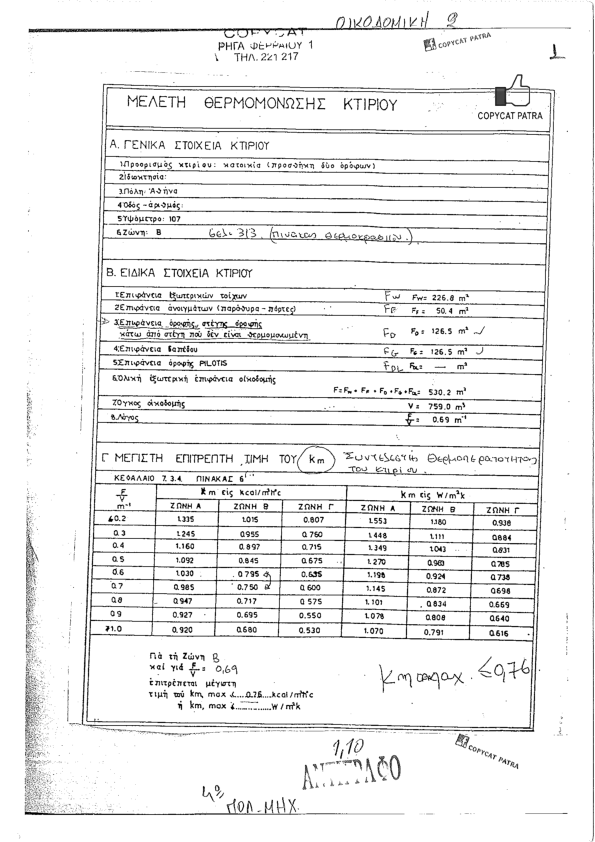 ΟΙΚΟΔΟΜΙΚΗ 2
COPYCAT
ΡΗΓΑ ΦΕΡΡΑΙΟΥ 1
ΤΗΛ. 221 217
COPYCAT PATRA
1
COPYCAT PATRA
ΜΕΛΕΤΗ ΘΕΡΜΟΜΟΝΩΣΗΣ ΚΤΙΡΙΟΥ
Α. ΓΕΝΙΚΑ ΣΤΟΙΧΕΙΑ ΚΤΙΡΙΟΥ
1.Προορισμός κτιρίου: κατοικία (προσθήκη δύο ὀρόφων)
2.Ἰδιοκτησία:
3.Πόλη: Ἀθήνα
4.Ὁδός - ἀριθμός:
5.Ὑψόμετρο: 107
6.Ζώνη: Β σελ. 313 (πίνακας θερμοκρασιών.)
Β. ΕΙΔΙΚΑ ΣΤΟΙΧΕΙΑ ΚΤΙΡΙΟΥ
1.Ἐπιφάνεια ἐξωτερικῶν τοίχων Fw Fw= 226.8 m²
2.Ἐπιφάνεια ἀνοιγμάτων (παράθυρα - πόρτες) FF FF= 50.4 m²
3.Ἐπιφάνεια ὀροφῆς, στέγης, ὀροφῆς
κάτω ἀπό στέγη πού δέν εἶναι θερμομονωμένη FD FD= 126.5 m²
4.Ἐπιφάνεια δαπέδου FG FG= 126.5 m²
5.Ἐπιφάνεια ὀροφῆς PILOTIS FDL FDL= — m²
6.Ὁλική ἐξωτερική ἐπιφάνεια οἰκοδομῆς
F=Fw+FF+FD+FG+FDL= 530.2 m²
7.Ὄγκος οἰκοδομῆς V = 759.0 m³
8.Λόγος F/V = 0.69 m⁻¹
Γ ΜΕΓΙΣΤΗ ΕΠΙΤΡΕΠΤΗ ΤΙΜΗ ΤΟΥ km Συντελεστής Θερμοπερατότητας
του κτιρίου.
ΚΕΦΑΛΑΙΟ 7.3.4. ΠΙΝΑΚΑΣ 6
F/V m⁻¹ km εἰς kcal/m²h°c km εἰς W/m²k
ΖΩΝΗ Α ΖΩΝΗ Β ΖΩΝΗ Γ ΖΩΝΗ Α ΖΩΝΗ Β ΖΩΝΗ Γ
≤0.2 1.335 1.015 0.807 1.553 1.180 0.938
0.3 1.245 0.955 0.760 1.448 1.111 0.884
0.4 1.160 0.897 0.715 1.349 1.043 0.831
0.5 1.092 0.845 0.675 1.270 0.983 0.785
0.6 1.030 0.795 0.635 1.198 0.924 0.738
0.7 0.985 0.750 0.600 1.145 0.872 0.698
0.8 0.947 0.717 0.575 1.101 0.834 0.669
0.9 0.927 0.695 0.550 1.078 0.808 0.640
≥1.0 0.920 0.680 0.530 1.070 0.791 0.616
Γιά τή Ζώνη Β
καί γιά F/V = 0,69
ἐπιτρέπεται μέγιστη
τιμή τοῦ km, max ≤....0.76....kcal/m²h°c
ἤ km, max ≤..............W/m²k
km max. ≤0,76
1,10
ΑΝΤΙΓΡΑΦΟ
COPYCAT PATRA
ΠΟΛ. ΜΗΧ.